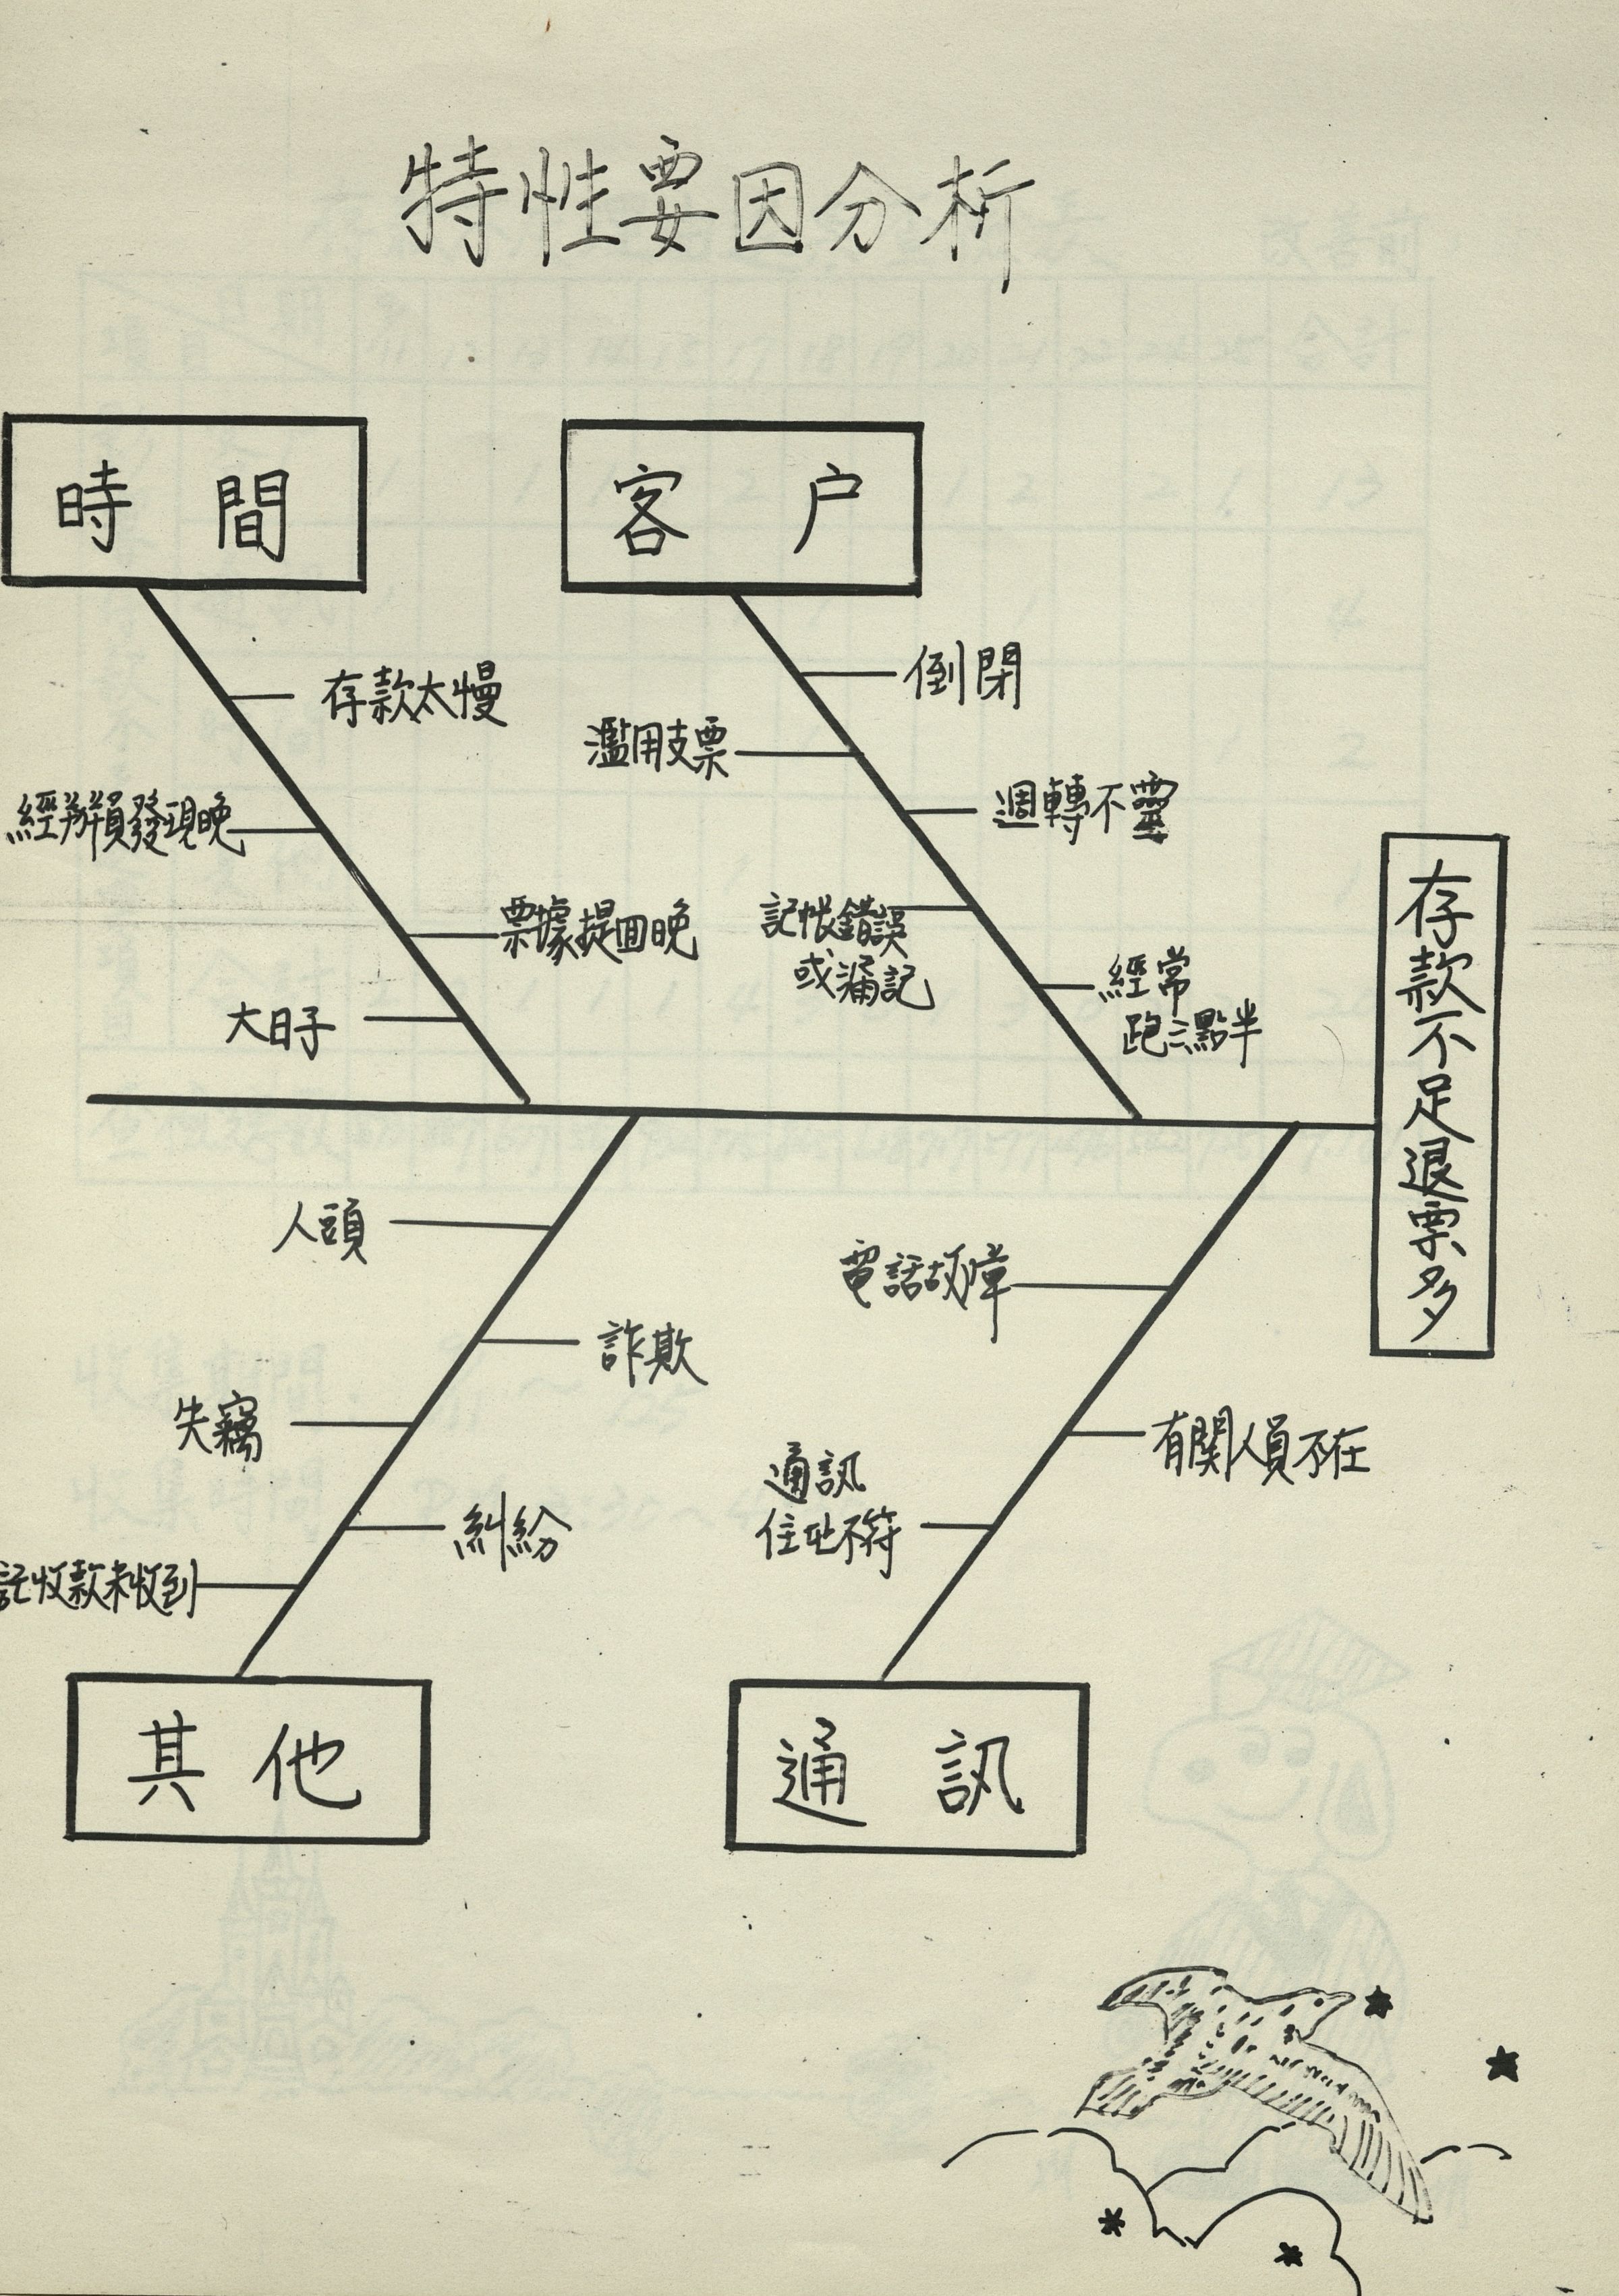 特性要因分析
時間
客户
存款太慢
經辦員發現晚
票據提回晚
大日子
倒閉
濫用支票
週轉不靈
記帳錯誤
或漏記
經常
跑三點半
存款不足退票多
人頭
詐欺
失竊
糾紛
記收款未收到
電話故障
有関人員不在
通訊
住址不符
其他
通訊